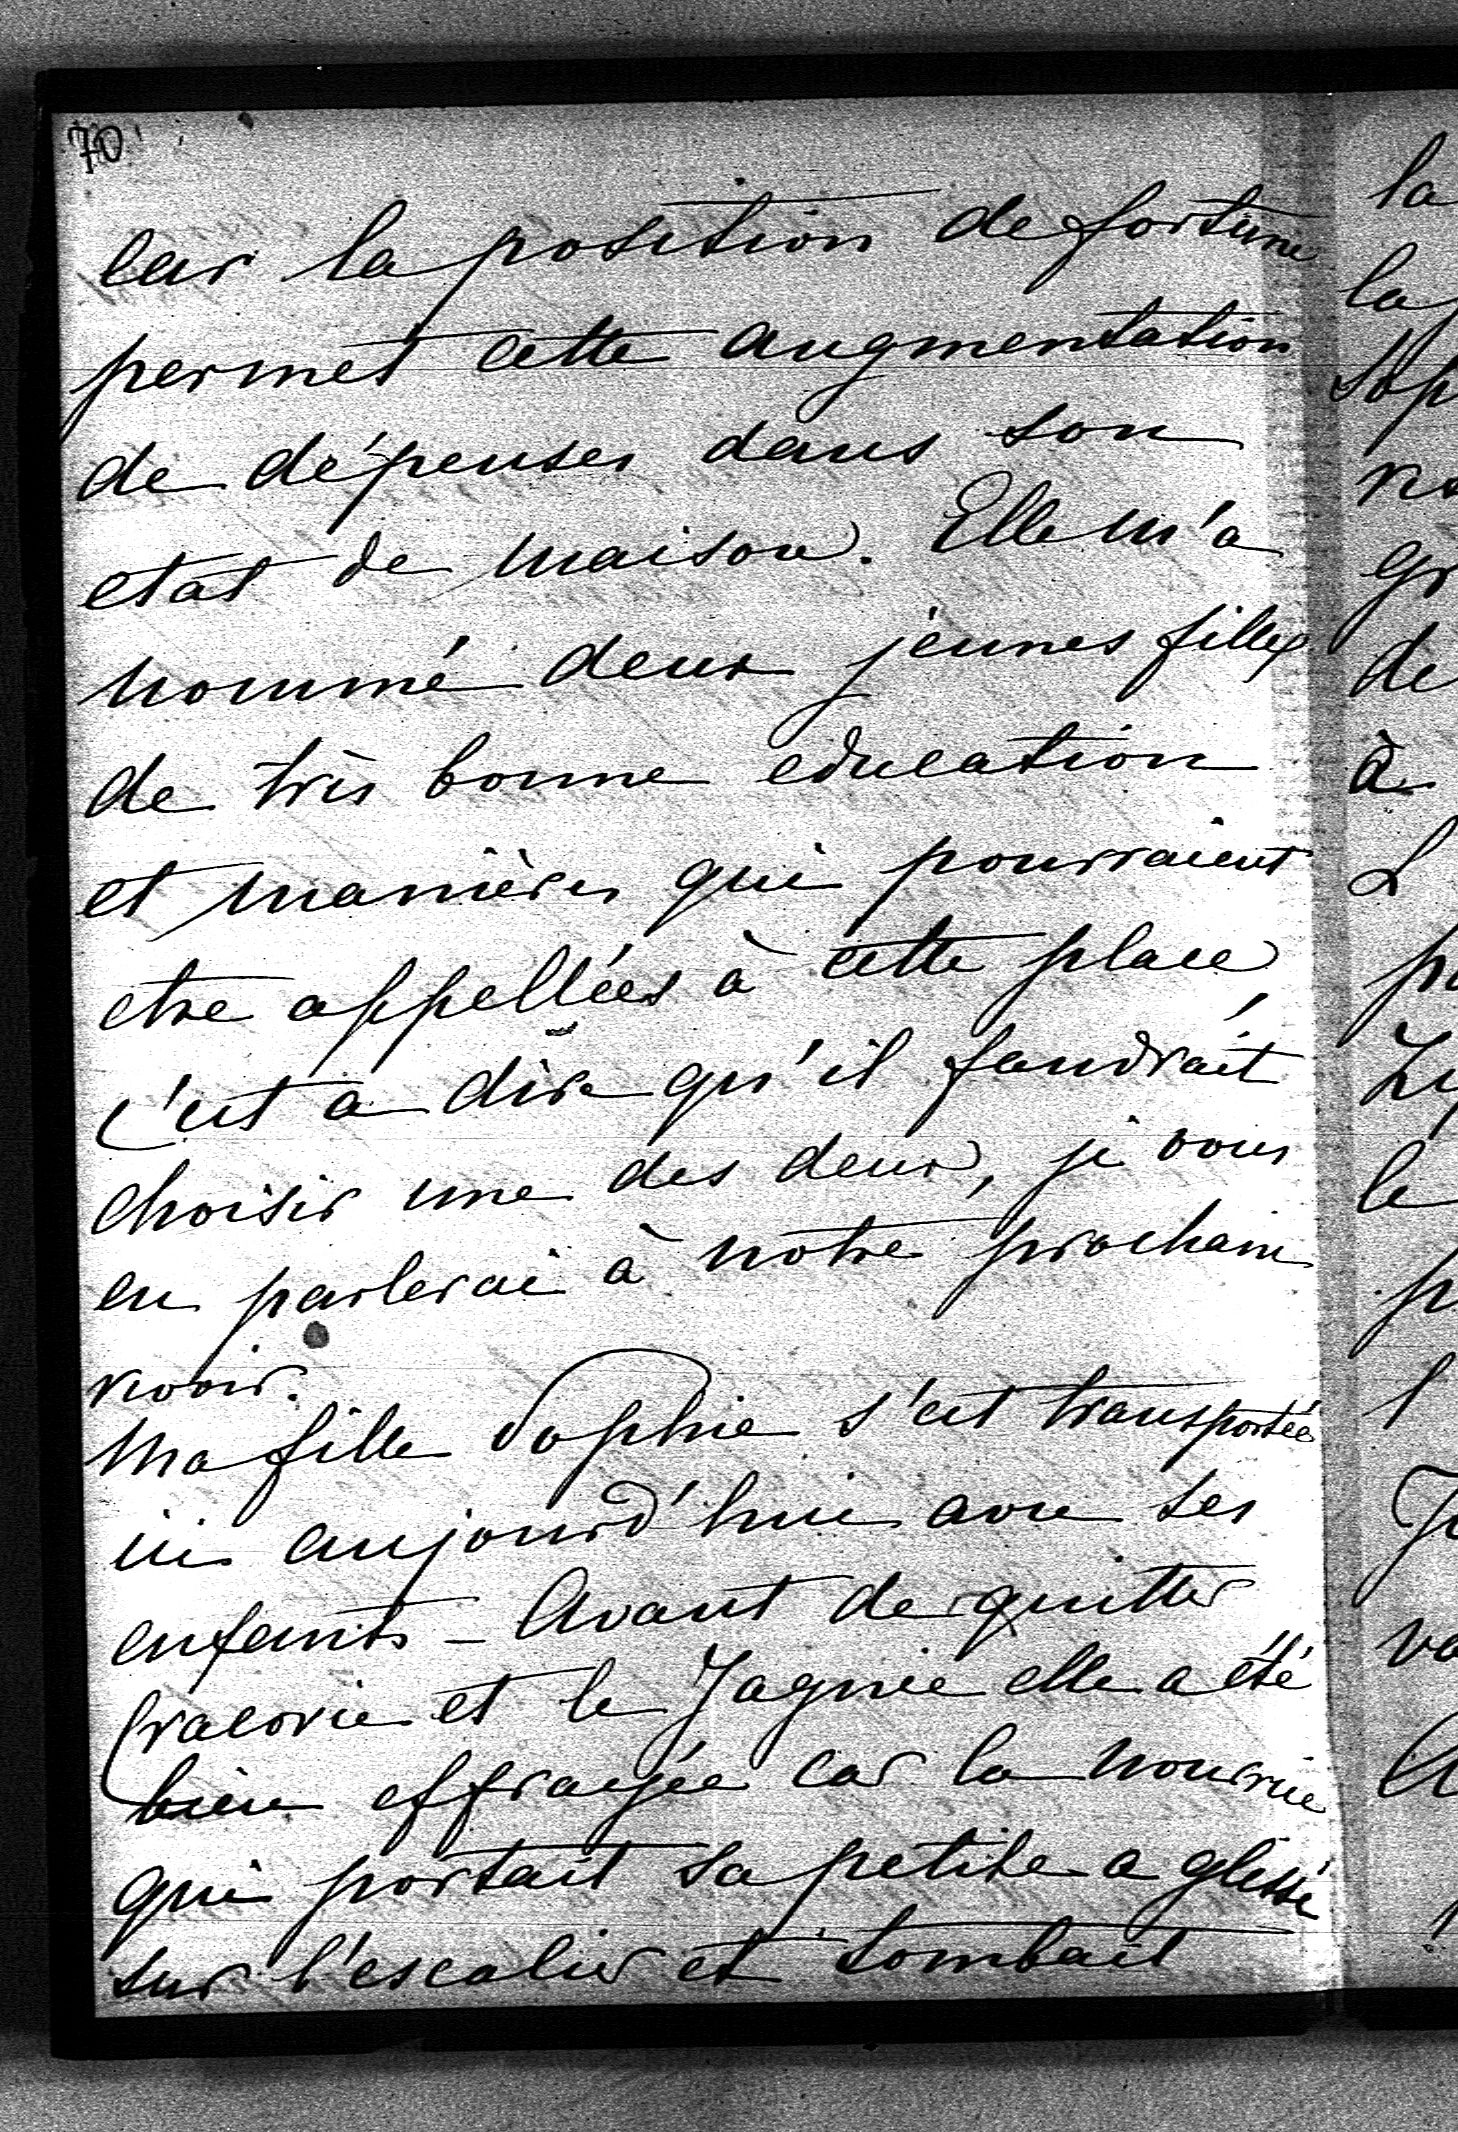 70
car la position de fortune
permet cette augmentation
de dépenses dans son
etat de maison. Elle m'a
nommé deux jeunes filles
de très bonne education
et manières qui pourraient
etre appellées à cette place,
c'est a dire qu'il faudrait
choisir une des deux, je vous
en parlerai à notre prochain
revoir.
Ma fille Sophie s'est transportée
ici aujourd'hui avec ses
enfants – Avant de quitter
Cracovie et le Jagnie elle a été
bien effrayée car la nourrice
qui portait sa petite a glissé
sur l'escalier et tombait
la
la
Sop
gr
de
à
L
le